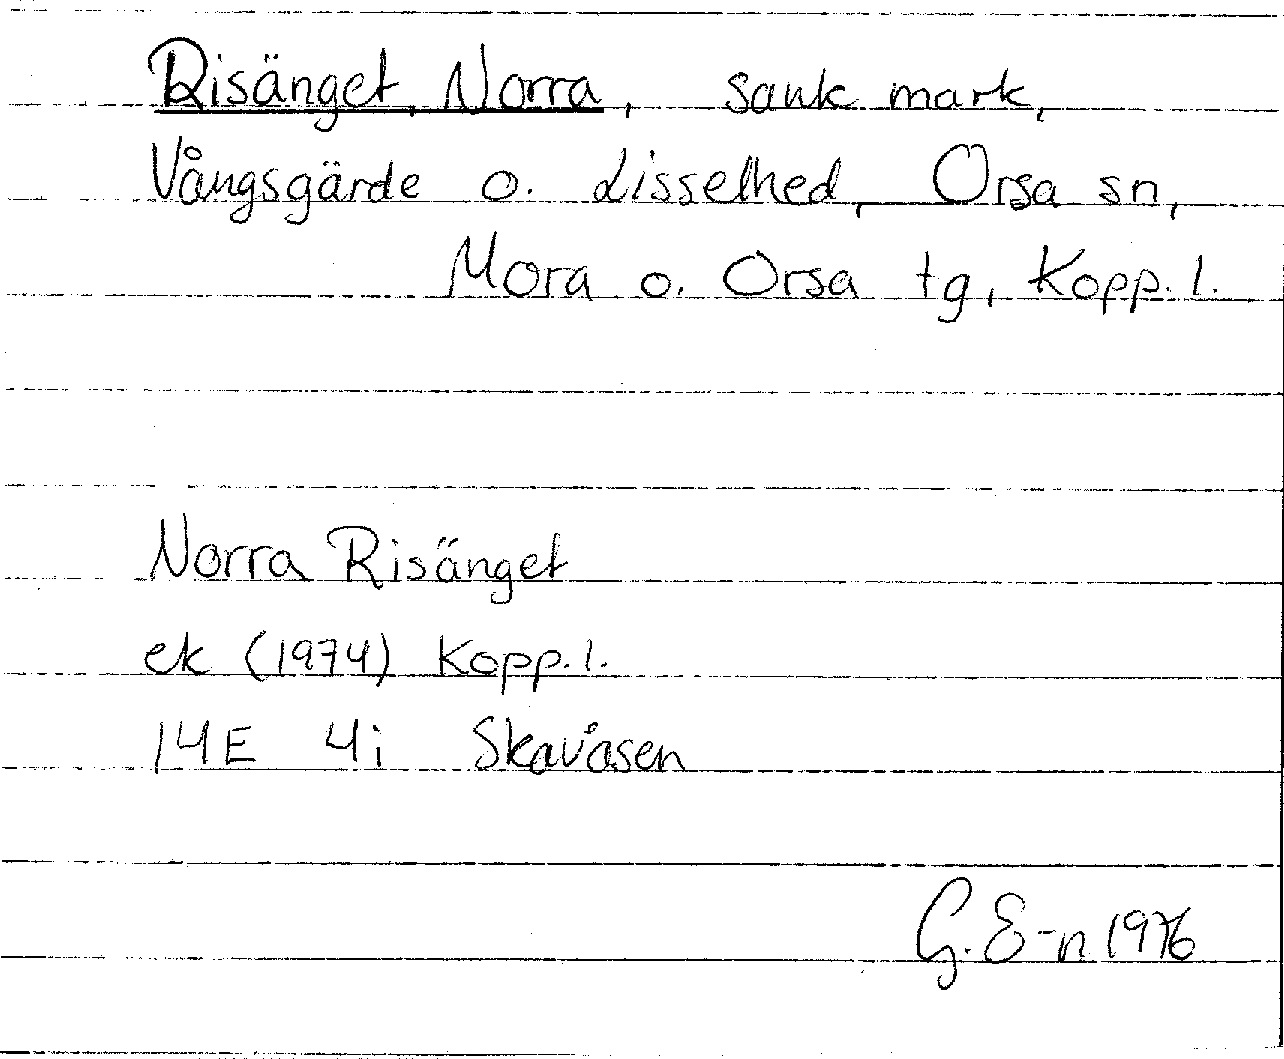 Risänget, Norra, sank mark,
Vångsgärde o. Lisselhed, Orsa sn,
Mora o. Orsa tg, Kopp. l.
Norra Risänget
ek (1974) Kopp. l.
14E 4i Skavåsen
G. E-n 1976